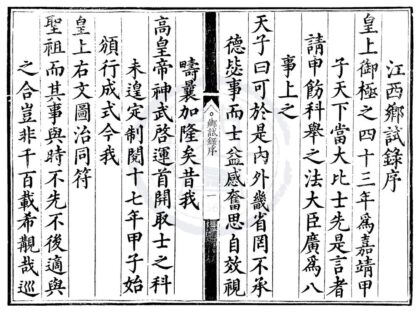 江西鄉試錄序
皇上御極之四十三年爲嘉靖甲
子天下當大比士先是言者
請申飭科舉之法大臣廣爲八
事上之
天子曰可於是內外畿省罔不承
德毖事而士益感奮思自效視
鄉試錄序
一
疇曩加隆矣昔我
高皇帝神武啓運首開取士之科
未遑定制閱十七年甲子始
頒行成式今我
皇上右文圖治同符
聖祖而其事與時不先不後適與
之合豈非千百載希覯哉巡